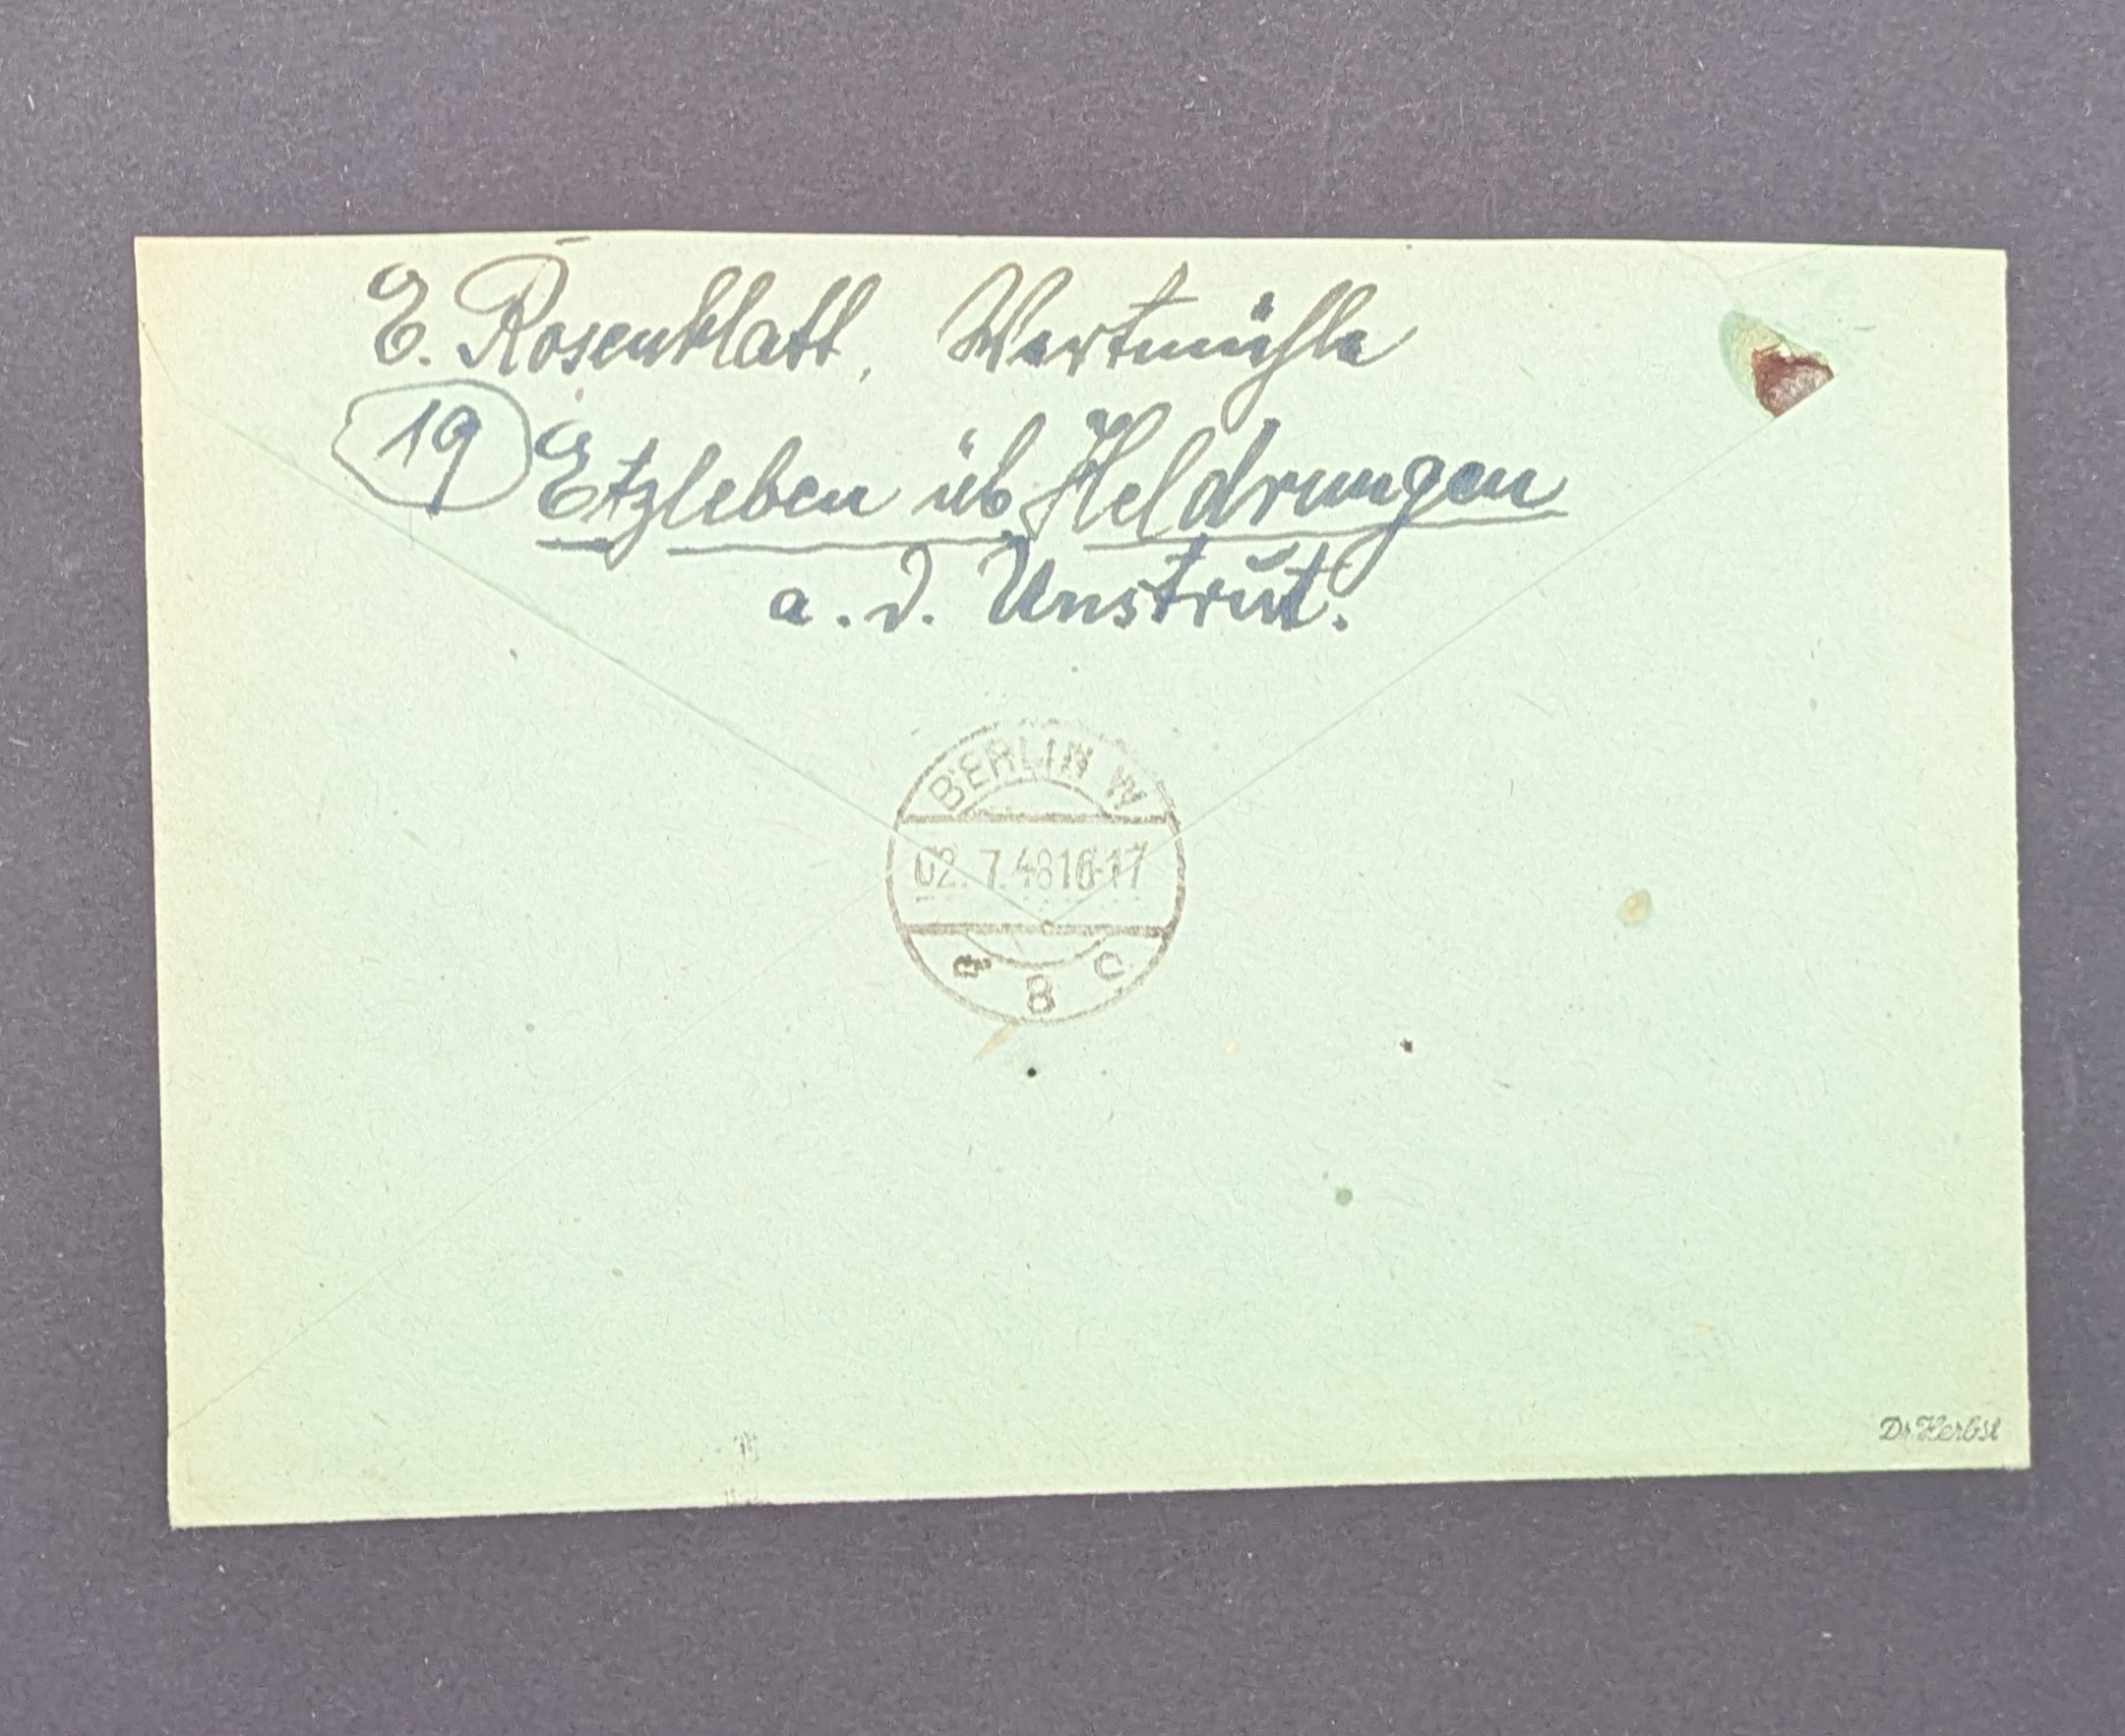 E. Rosenblatt, Wertmühle
19 Etzleben üb Heldrungen
a. d. Unstrut.
BERLIN W
02. 7. 48 16-17
8 C
Dr Herbst